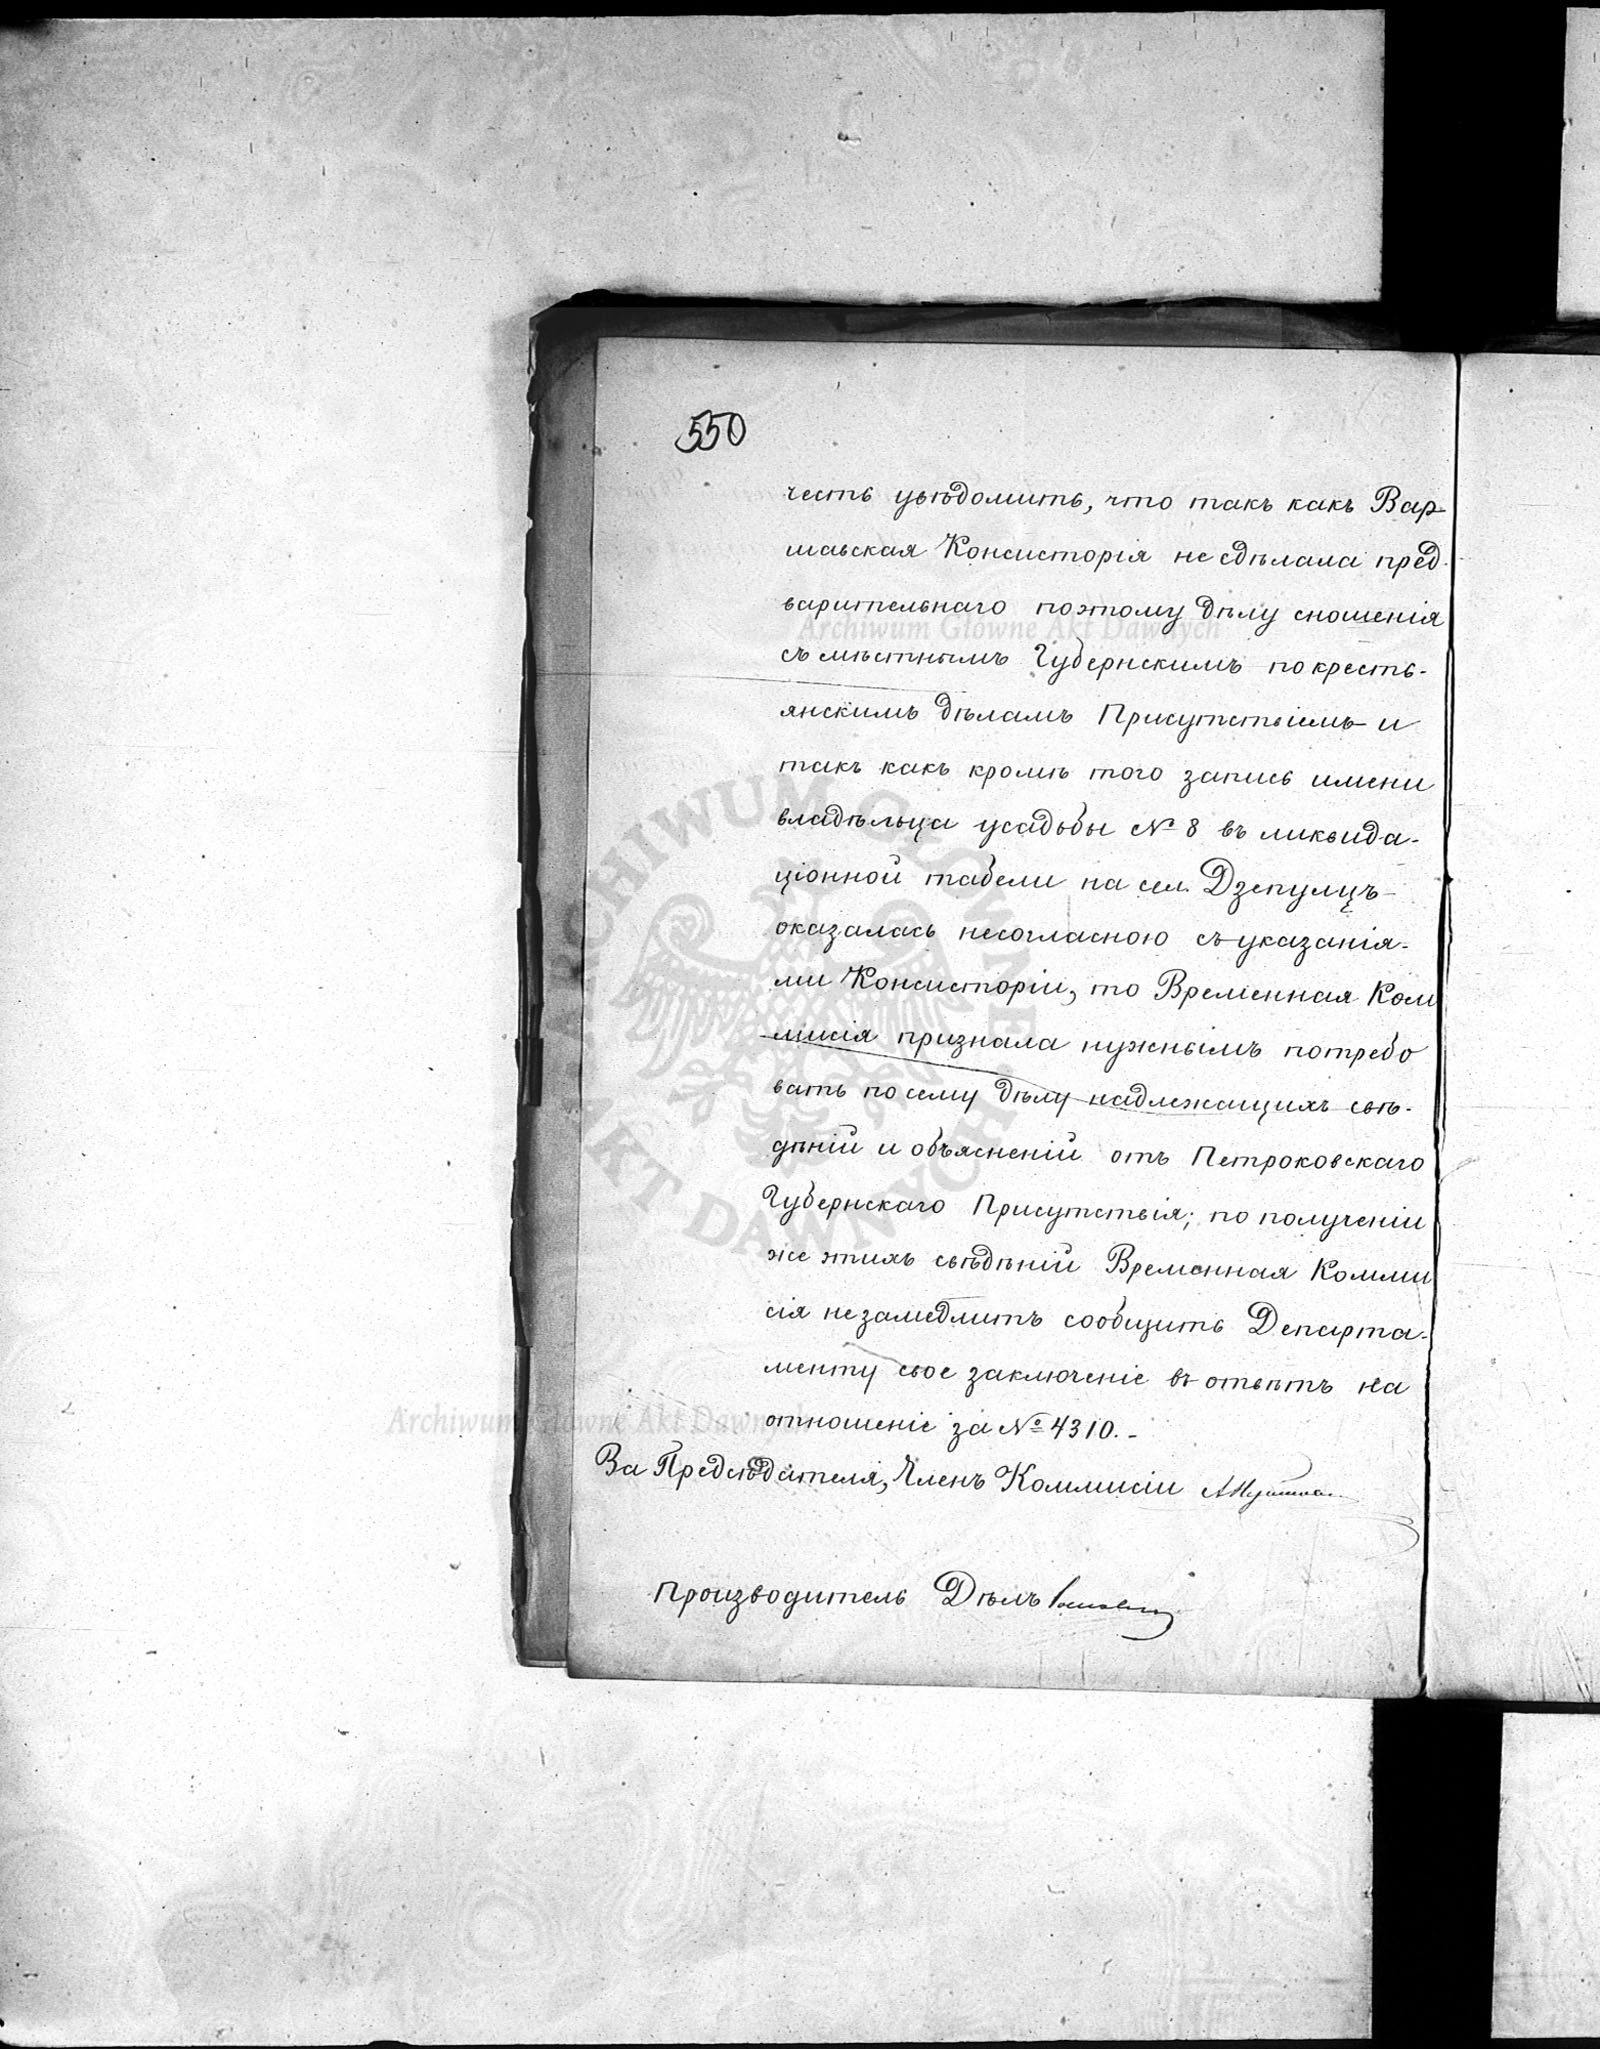 550
честь увѣдомить, что такъ какъ Вар-
шавская Консисторія не сдѣлала пред-
варительнаго поэтому дѣлу сношенія
съ мѣстнымъ Губернскимъ по кресть-
янскимъ дѣламъ Присутствіемъ и
такъ какъ кромѣ того запись имени
владѣльца усадьбы № 8 въ ликвида-
ціонной табели на сел. Дзепулцъ
оказалась несогласною съ указанія-
ми Консисторіи, то Временная Ком
мисія признала нужнымъ потребо
вать по сему дѣлу надлежащихъ свѣ-
дѣній и объясненій отъ Петроковскаго
Губернскаго Присутствія; по полученіи
же этихъ свѣдѣній Временная Комми
сія незамедлитъ сообщить Департа-
менту свое заключеніе въ отвѣтъ на
отношеніе за № 4310.-
За Предсѣдателя, Членъ Коммисіи
Производитель Дѣлъ
Archiwum Główne Akt Dawnych
ARCHIWUM GŁÓWNE AKT DAWNYCH
Archiwum Główne Akt Dawnych